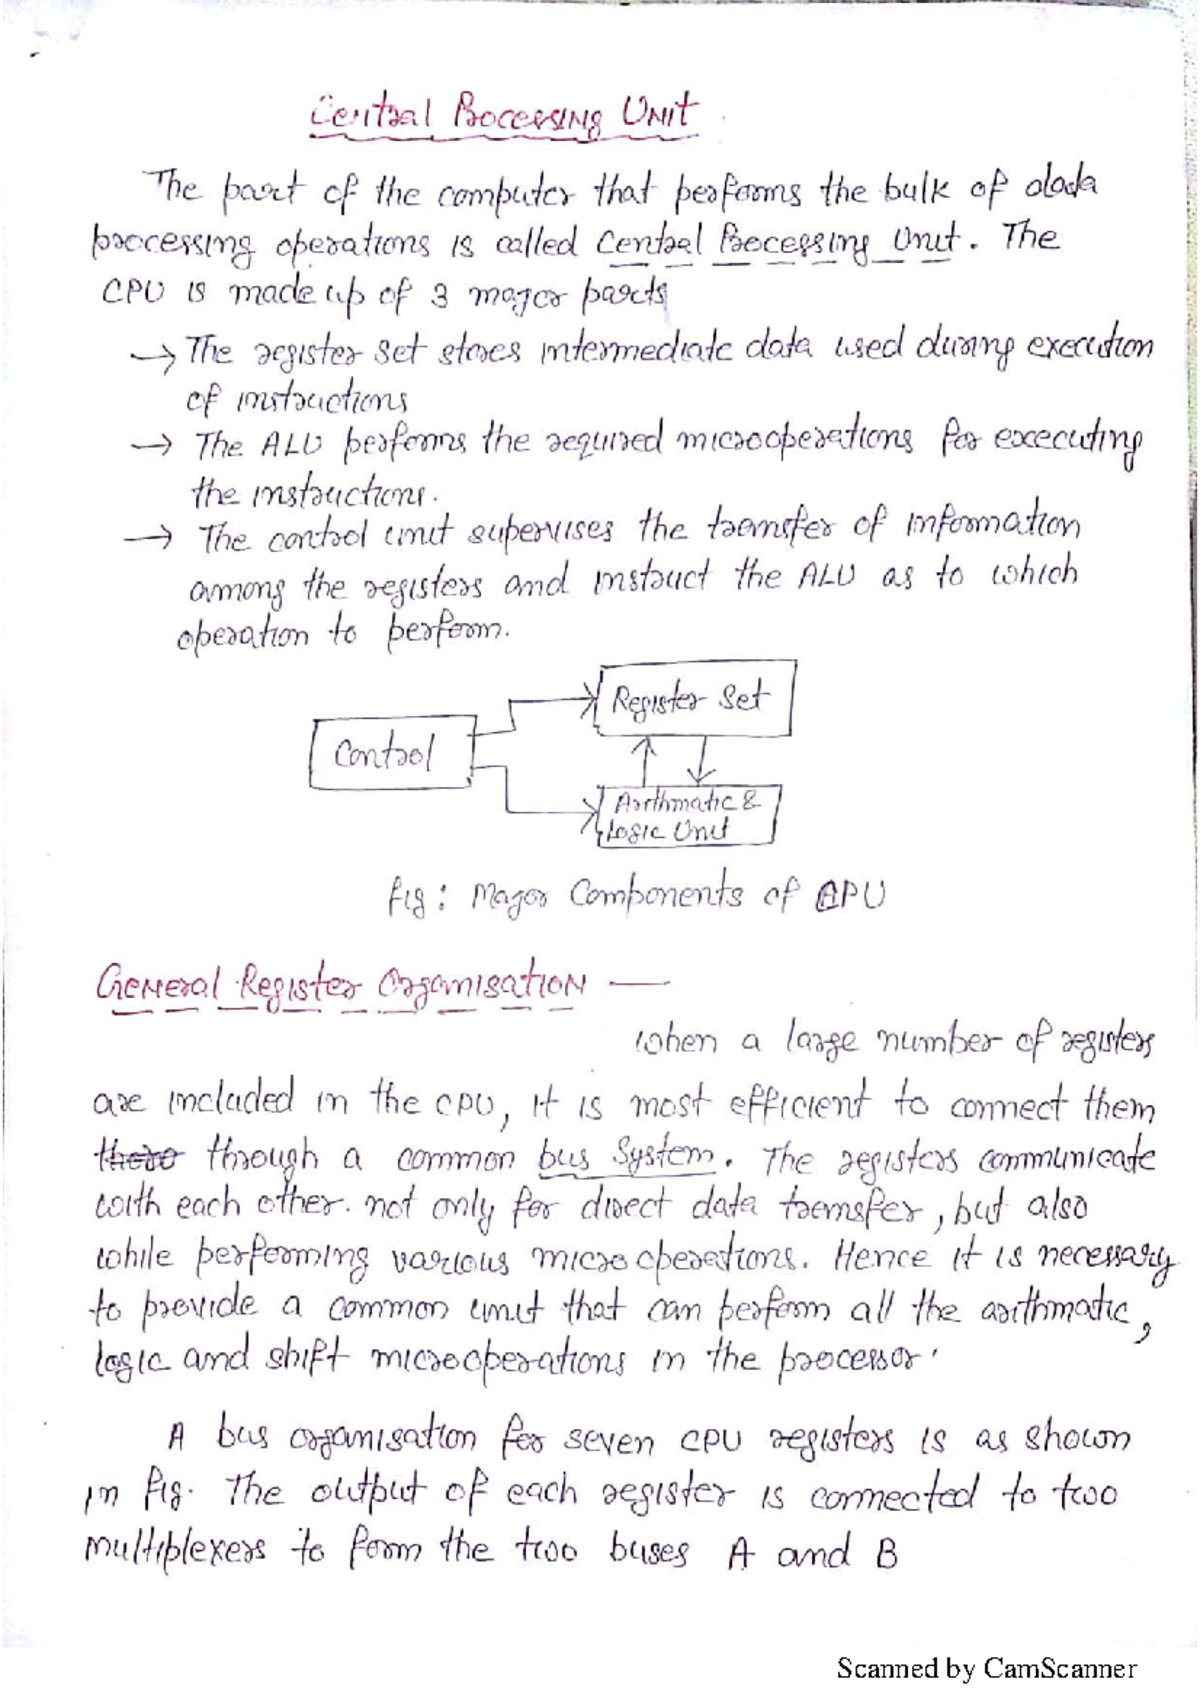 Central Processing Unit
The part of the computer that performs the bulk of data
processing operations is called Central Processing Unit. The
CPU is made up of 3 major parts
→ The register set stores intermediate data used during execution
of instructions
→ The ALU performs the required microoperations for executing
the instructions.
→ The control unit supervises the transfer of information
among the registers and instruct the ALU as to which
operation to perform.
Register Set
Control
Arithmatic &
Logic Unit
fig: Major Components of CPU
General Register Organisation —
When a large number of registers
are included in the CPU, it is most efficient to connect them
through a common bus system. The registers communicate
with each other. not only for direct data transfer, but also
while performing various micro operations. Hence it is necessary
to provide a common unit that can perform all the arithmatic,
logic and shift microoperations in the processor.
A bus organisation for seven CPU registers is as shown
in fig. The output of each register is connected to two
multiplexers to form the two buses A and B
Scanned by CamScanner